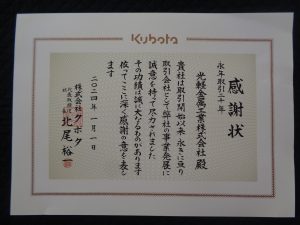 Kubota
感謝状
永年取引三十年
光軽金属工業株式会社 殿
貴社は取引開始以来 永きに亘り
取引会社として弊社の事業発展に
誠意を持って尽力されました
その功績は誠に大なるものがあります
依ってここに深く感謝の意を表し
ます
二〇二四年 一月一日
株式会社クボタ
代表取締役社長 北尾裕一